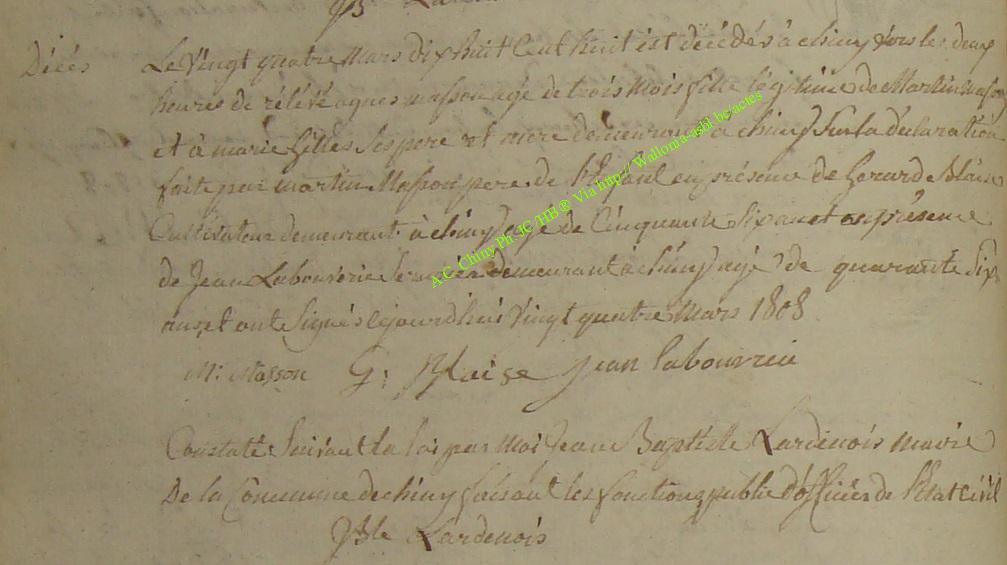 Décés
Le vingt quatre mars dix huit cent huit est décédés à chiny vers les deux
heures de rélévé agnes masson agé de trois mois fille légitime de Martin masson
et à marie Gilles ses pere et mere demeurant à chiny sur la déclaration
faite par martin Masson pere de l'Enfant en présence de Gerard Blaise
Cultivateur demeurant à chiny agé de Cinquante six ans et en présence
de Jean Labouverie demeurant à chiny agé de quarante six
ans, et ont signés cejourdhui vingt quatre Mars 1808
M: Masson G: Blaise Jean labouvrie
Constaté suivant la loi par moi Jean Baptiste Lardinois maire
De la Commune de chiny faisant les fonctions public d'officier de l'Etat Civil
JBte Lardenois
A.C. Chiny Ph. JC HB® Via http:// Wallonia-asbl.be/actes